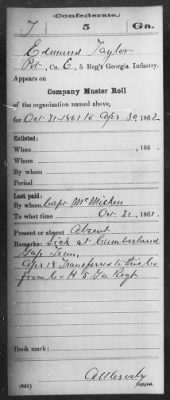 (Confederate.)
T 5 Ga.
Edmund Taylor
Pvt, Co. E, 5 Reg't Georgia Infantry.
Appears on
Company Muster Roll
of the organization named above,
for Oct 31 1861 to Apr 30, 1862
Enlisted:
When , 186 .
Where
By whom
Period
Last paid:
By whom Capt McMichen
To what time Oct 31, 1861.
Present or absent Absent
Remarks: Sick at Cumberland
Gap Tenn,
Apr 18 Transferred to this Co
from Co H. 5 Ga Regt
Book mark:
(642)
Copyist.